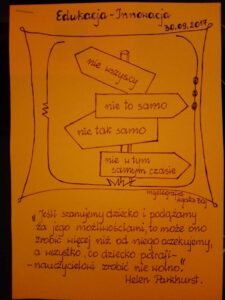 Edukacja - Innowacja
30.09.2017
nie wszyscy
nie to samo
nie tak samo
nie w tym
samym czasie
myślografia
Agata Baj
"Jeśli szanujemy dziecko i podążamy
za jego możliwościami, to może ono
zrobić więcej niż od niego oczekujemy,
a wszystko, co dziecko potrafi -
- nauczycielowi zrobić nie wolno."
Helen Parkhurst.